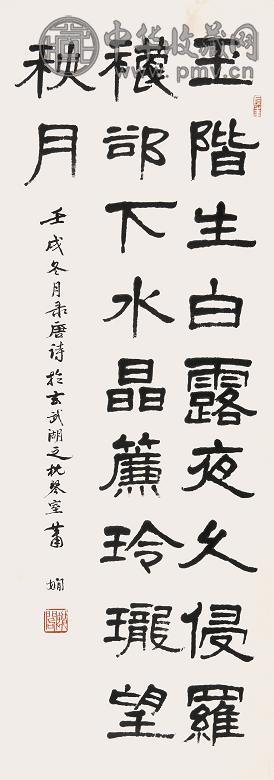 中华收藏网
www.pmv.cn
玉階生白露夜久侵羅
襪卻下水晶簾玲瓏望
秋月
壬戌冬月录唐詩於玄武湖之枕琴室蕭嫻